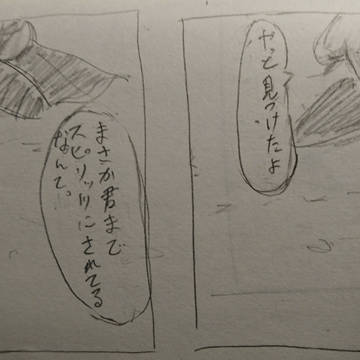 やっと見つけたよ
まさか君まで
スピリットにされてる
なんて。